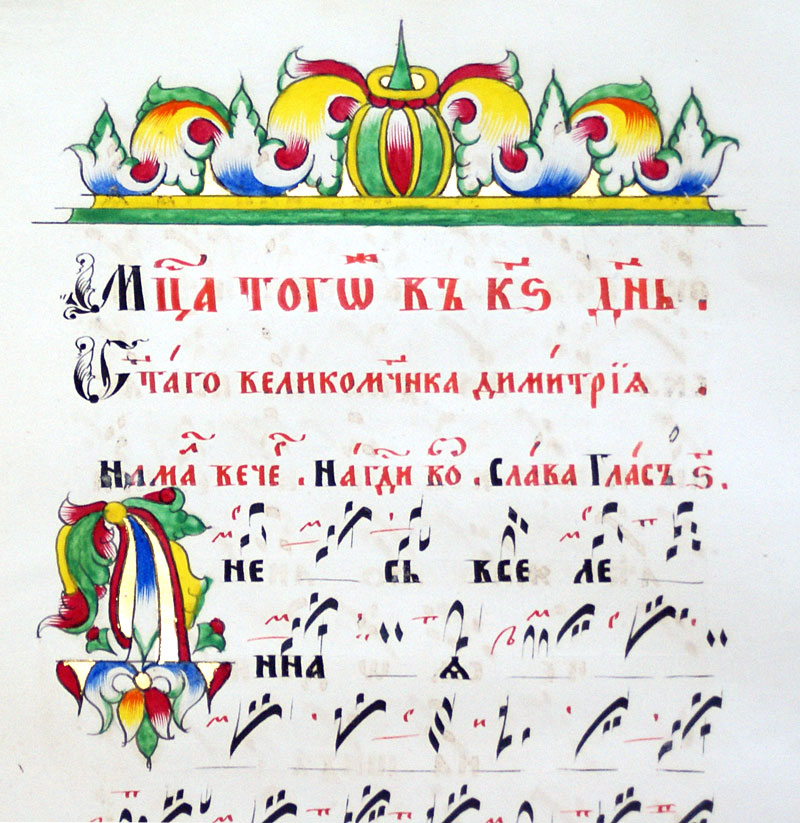 Мц҃а тогѡ̀ въ к҃ѕ дн҃ь .
Ст҃а́го великомч҃нка дими́трїѧ .
Намаⷧ҇ вечеⷬ҇ . На́ гдⷭ҇и воⷥ҇ . Сла́ва Гла́съ ѕ҃ .
Дне сь вселе
ннаѧ